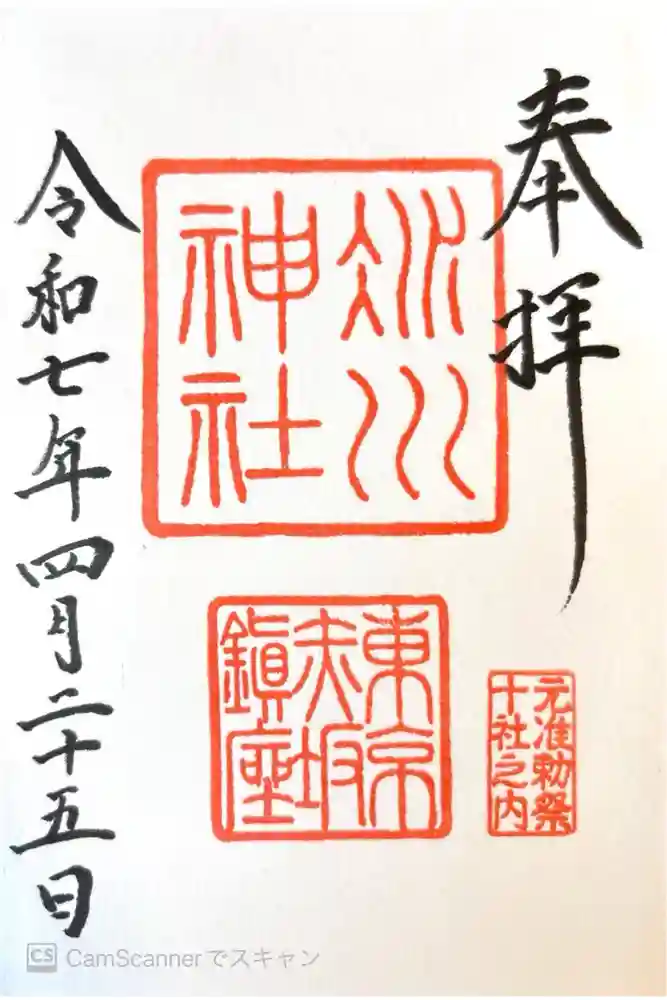 奉拝
氷川
神社
東京
赤坂
鎮座
元准勅祭
十社之内
令和七年四月二十五日
CS CamScannerでスキャン